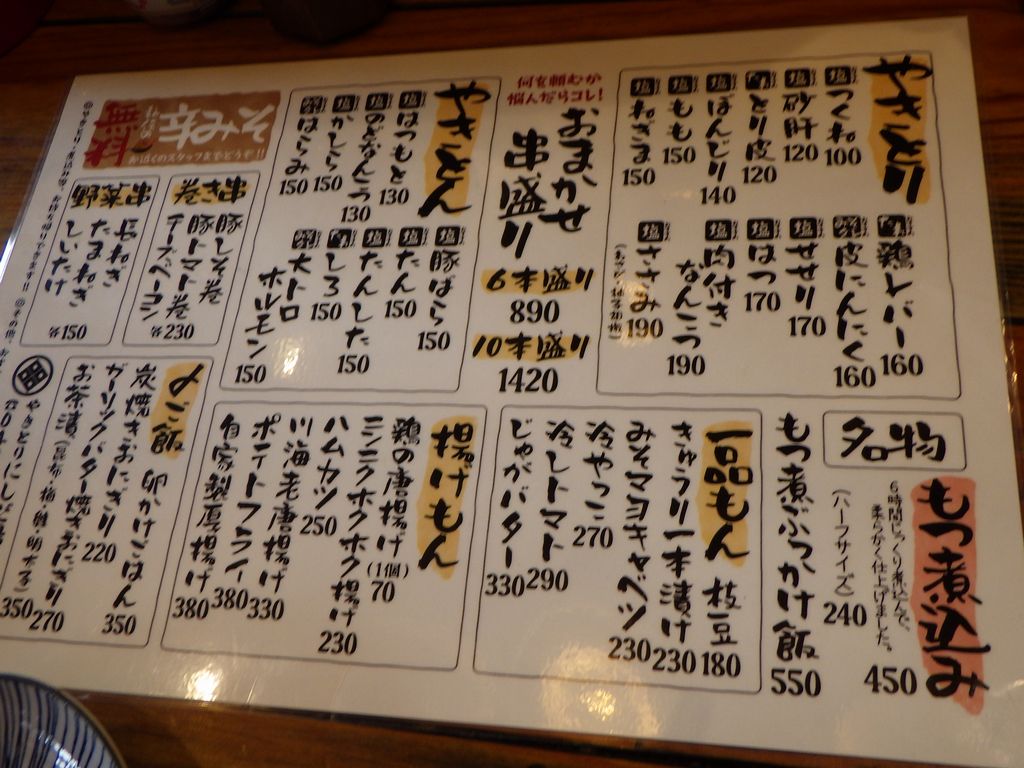 やきとり
塩 つくね 100
塩 砂肝 120
とり皮 120
塩 ぼんじり 140
塩 もも 150
塩 ねぎま 150
鶏レバー 160
皮にんにく 160
塩 せせり 170
塩 はつ 170
塩 肉付きなんこつ 190
塩 ささみ 190
何を頼むか
悩んだらコレ!
おまかせ
串盛り
6本盛り
890
10本盛り
1420
やきとん
塩 はつもと 130
塩 のどなんこつ 130
塩 かしら 150
はらみ 150
塩 豚ばら 150
塩 たん 150
塩 たんした 150
しろ 150
塩 大トロホルモン 150
辛みそ
無料
お近くのスタッフまでどうぞ!!
巻き串
豚しそ巻
豚トマト巻
チーズベーコン
各230
野菜串
長ねぎ
たまねぎ
しいたけ
各150
名物
もつ煮込み 450
6時間じっくり煮込んで、
柔らかく仕上げました。
(ハーフサイズ) 240
もつ煮ぶっかけ飯 550
一品もん
枝豆 180
きゅうり一本漬け 230
みそマヨキャベツ 230
冷やっこ 270
冷しトマト 290
じゃがバター 330
揚げもん
鶏の唐揚げ (1個) 70
ニンニクホクホク揚げ 230
ハムカツ 250
川海老唐揚げ 330
ポテトフライ 380
自家製厚揚げ 380
〆ご飯
卵かけごはん 350
炭焼きおにぎり 220
ガーリックバター焼きおにぎり 270
お茶漬 (昆布・梅・鮭・明太子) 350